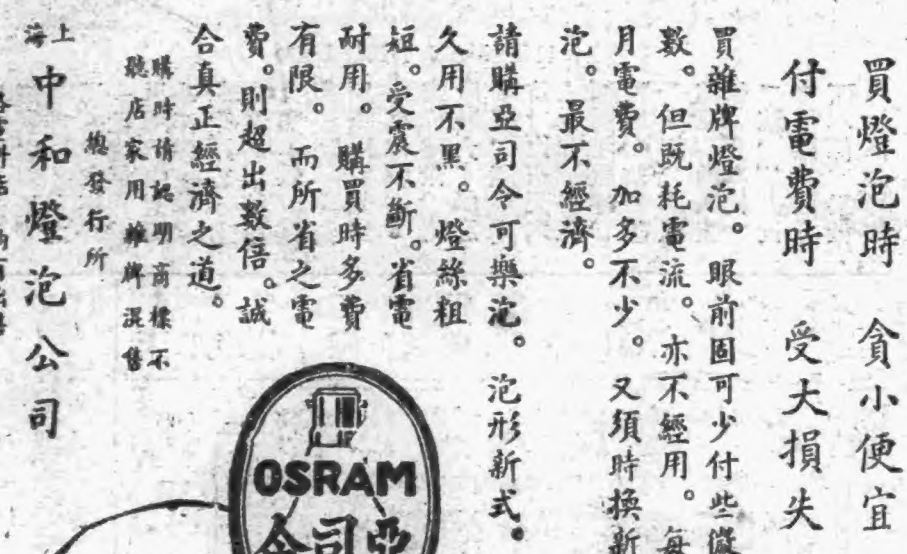 買燈泡時 貪小便宜
付電費時 受大損失
買雜牌燈泡。眼前固可少付些微
數。但既耗電流。亦不經用。每
月電費。加多不少。又須時換新
泡。最不經濟。
請購亞司令可樂泡。泡形新式。
久用不黑。燈絲粗
短。受震不斷。省電
耐用。購買時多費
有限。而所省之電
費。則超出數倍。誠
合真正經濟之道。
購時請認明商標不
聽店家用雜牌混售
總發行所
上海 中和燈泡公司
OSRAM
亞司令